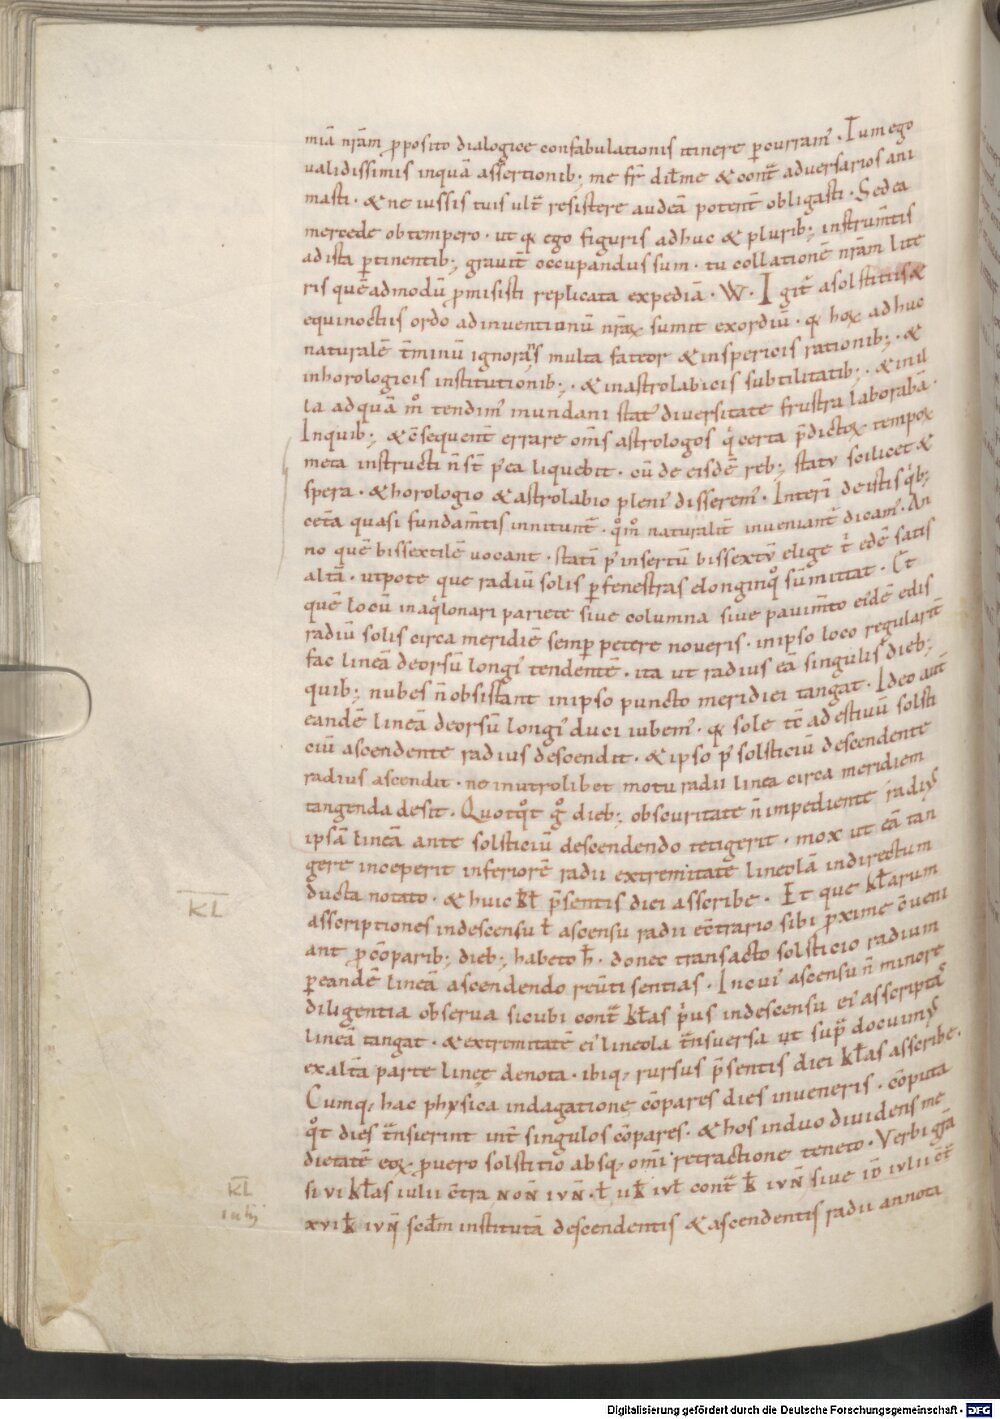 miā nr̄am ꝓposito dialogice confabulationis itinere ꝑcurram᾽. Tum ego
validissimis inquā assertionib; me fr̄ dilme & cont̄ adversarios ani
masti. & ne iussis tuis ult̄ resistere audeā potent̄ obligasti. Sed ea
mercede obtempero. ut qͥ ego figuris adhuc & plurib; instrum̄tis
ad ista ꝑtinentib; gravit̄ occupandus sum. tu collationē nr̄am litte
ris quēadmodū ꝓmisisti replicata expediā. W. Igit᾽ a solstitiis &
equinoctiis ordo adinventionū nr̄aꝝ sumit exordiū. qͥ hoꝝ adhuc
naturalē t̄minū ignoraŝ multa fateor & in spericis rationib;. &
in horologicis institutionib;. & in astrolabicis subtilitatib;. & in il
la ad quā m̊ tendim᾽ mundani stat᾽ diversitate frustra laborabā.
In quib; & c̄sequent̄ errare om̄s astrologos qͥ certa p̄dictoꝝ tempoꝝ
meta instructi n̄ st̄ p᾽ea liquebit. cū de eisdē reb; statu scilicet &
spera. & horologio & astrolabio pleni᾽ disserem᾽. Interī de istis qͥb;
cet̄a quasi fundam̄tis innitunt᾽. qͦm̊ naturalit̄ inveniant᾽ dicam᾽. An
no quē bissextilē vocant. statī p᾽ insertū bissextū elige t᾽ edē satis
altā. utpote que radiū solis ꝑ fenestras e longinqͦ sum̄ittat. Et
quē locū in aqͥlonari pariete sive columna sive pavim̄to ei᾽dē edis
radiū solis circa meridiē semꝑ petere noveris. in ipso loco regularit̄
fac lineā deorsū longi᾽ tendentē. ita ut radius eā singulis dieb;
quib; nubes n̄ obsistant in ipso puncto meridiei tangat. Ideo aut̄
eandē lineā deorsū longi᾽ duci iubem᾽. qͥ sole tc̄ ad estivū solsti
ciū ascendente radius descendit. & ipso p᾽ solsticiū descendente
radius ascendit. ne in utrolibet motu radii linea circa meridiem
tangenda desit. Quotqͦt gͦ dieb; obscuritate n̄ impediente radiꝰ
ipsā lineā ante solsticiū descendendo tetigerit. mox ut eā tan
gere inceperit inferiorē radii extremitatē lineolā in directum
ducta notato. & huic kl̄ p̄sentis diei asscribe. Et que kl̄arum
asscriptiones in descensu ł ascensu radii ec̄trario sibi ꝓxime c̄veni
ant ꝓ c̄parib; dieb; habeto h̄. donec transacto solsticio radium
ꝑ eandē lineā ascendendo rev̄ti sentias. In cui᾽ ascensu n̄ minore
diligentia observa sicubi cont̄ kl̄as pͥus in descensu ei᾽ asscriptas
lineā tangat. & extremitatē ei᾽ lineola t̄nsversa ut sup̄ docuimꝰ
ex alt̄a parte lineę denota. ibiq; rursus p̄sentis diei kl̄as asscribe.
Cumq; hac physica indagatione c̄pares dies inveneris. c̄puta
qͦt dies t̄nsierint int̄ singulos c̄pares. & hos in duo dividens me
dietatē eoꝝ ꝓ vero solstitio absq; om̄i retractione teneto. Verbi gr̄a
si vi kl̄as iulii c̄tra noñ iuñ. ł ii k̄ iul̄ cont̄ k̄ iuñ sive id̄ iulii c̄t̄
xvi k̄ iuñ scdm̄ institutā descendentis & ascendentis radii annota
KL
KL
iulij
Digitalisierung gefördert durch die Deutsche Forschungsgemeinschaft - DFG